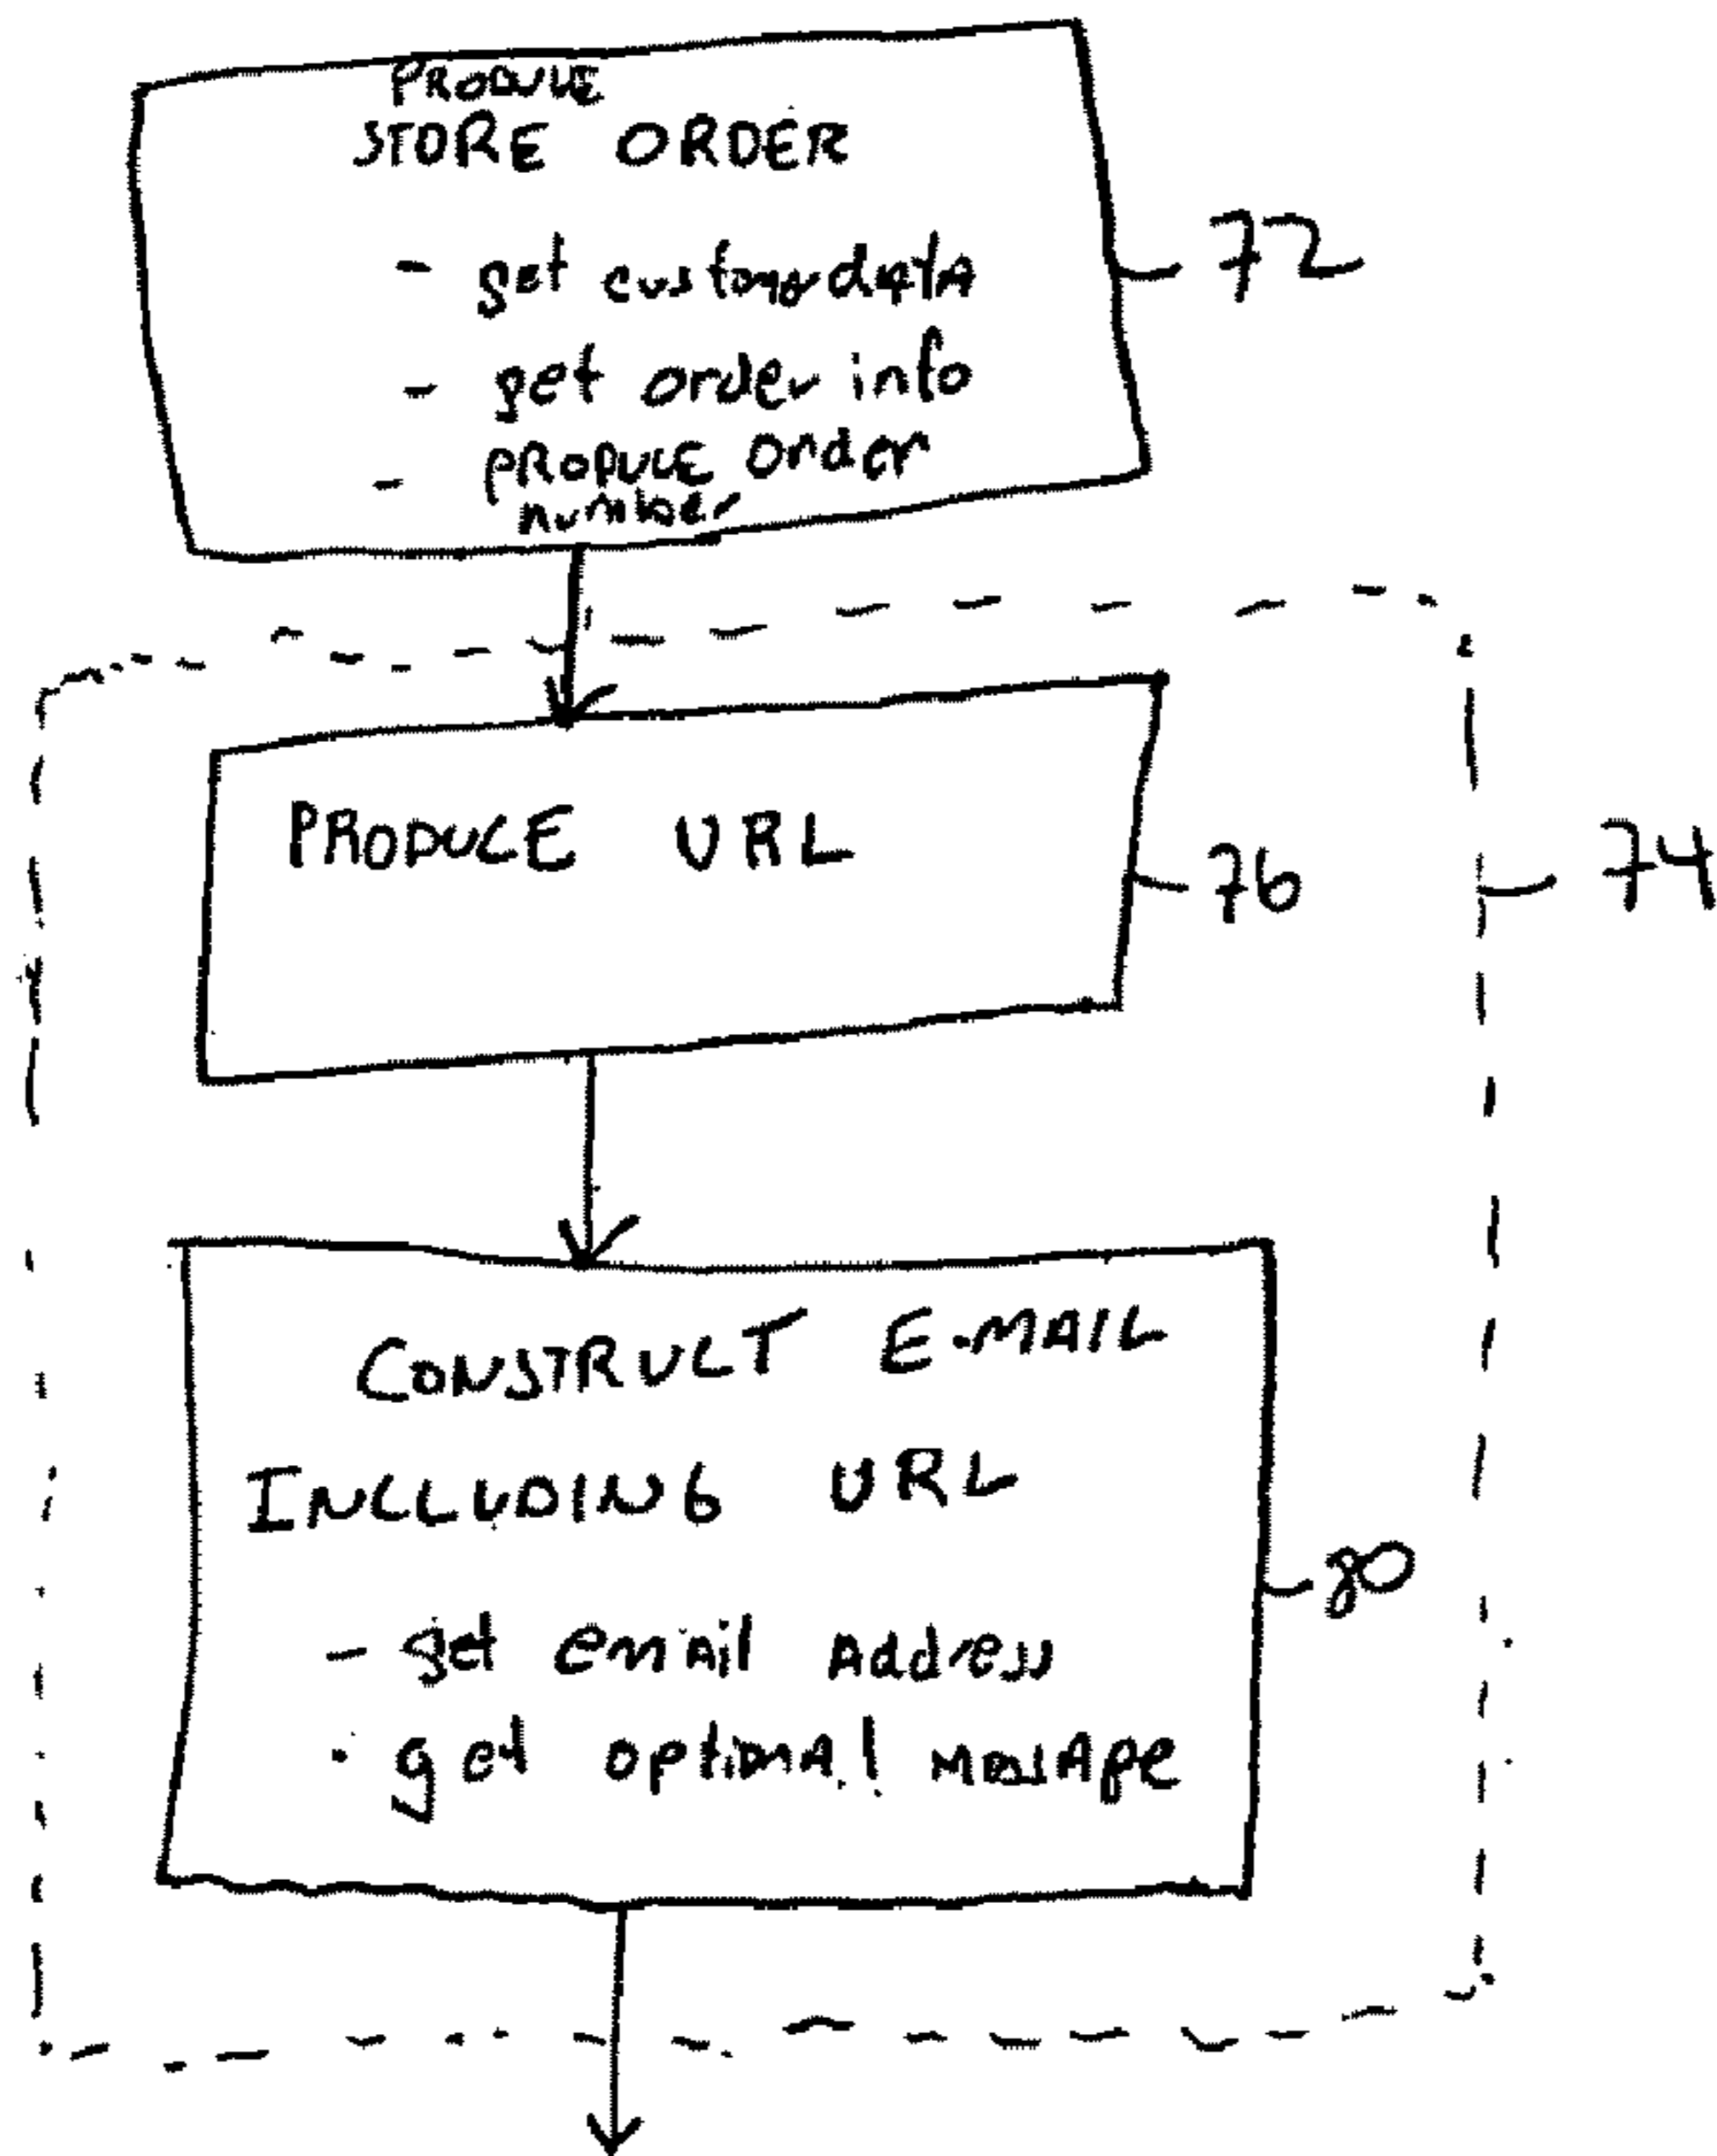 PRODUCE
STORE ORDER
- get customer data
72
- get order info
- PRODUCE order
number
PRODUCE URL
76
74
CONSTRUCT E-MAIL
INCLUDING URL
80
- get email Address
- get optional message